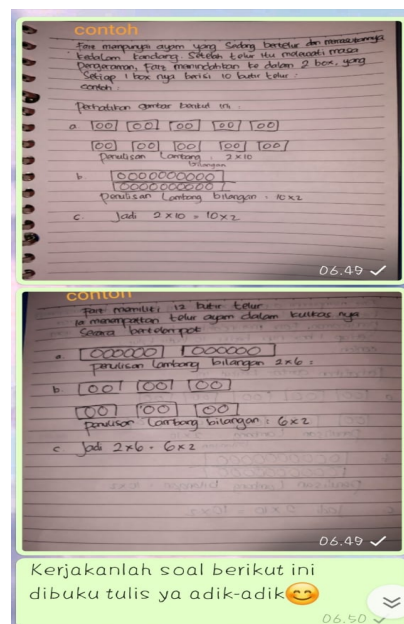 contoh
Fait mempunyai ayam yang sedang bertelur dan memasukannya
kedalam kandang. Setelah telur itu melewati masa
pengeraman, Fait memindahkan ke dalam 2 box, yang
setiap 1 box nya berisi 10 butir telur.
contoh:
perhatikan gambar berikut ini:
a. [OO] [OO] [OO] [OO] [OO]
[OO] [OO] [OO] [OO] [OO]
penulisan Lambang : 2 x 10
bilangan
b. OOOOOOOOOO
OOOOOOOOOO
penulisan Lambang bilangan = 10 x 2
c. Jadi 2 x 10 = 10 x 2
06.49
contoh
Fait memiliki 12 butir telur
ia menempatkan telur ayam dalam kulkas nya
secara berkelompok
a. [OOOOOO] [OOOOOO]
penulisan Lambang bilangan 2 x 6 :
b. [OO] [OO] [OO]
[OO] [OO] [OO]
penulisan Lambang bilangan : 6 x 2
c Jadi 2 x 6 = 6 x 2
06.49
Kerjakanlah soal berikut ini
dibuku tulis ya adik-adik😊
06.50